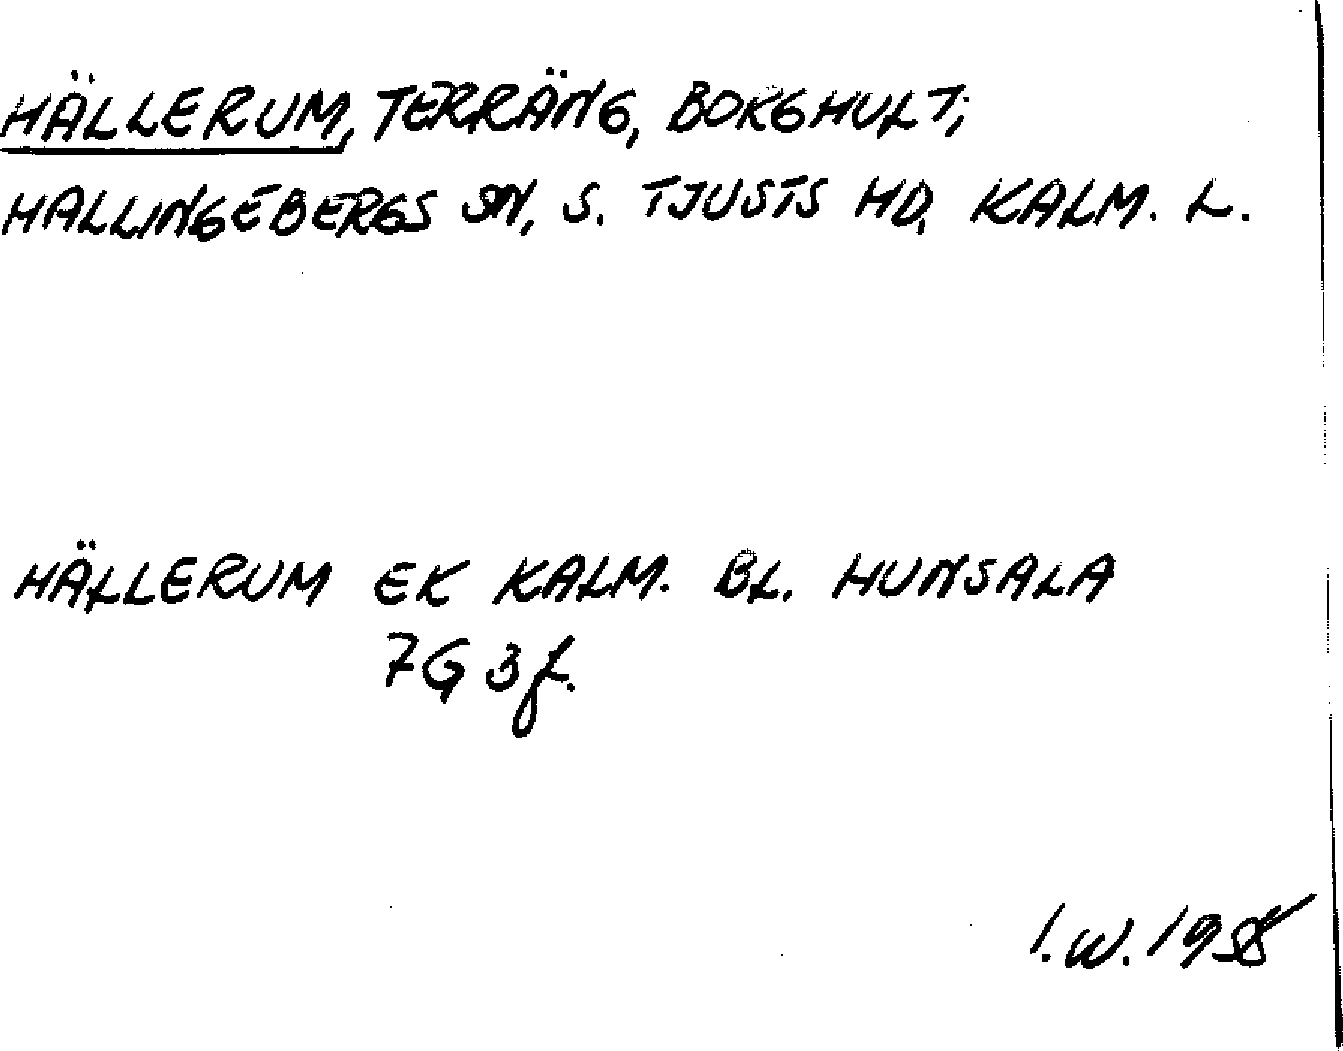 HÄLLERUM, TERRÄNG, BORGHULT;
HALLINGEBERGS SN, S. TJUSTS HD, KALM. L.
HÄLLERUM EK KALM. BL. HUNSALA
7G 3f.
I.W.